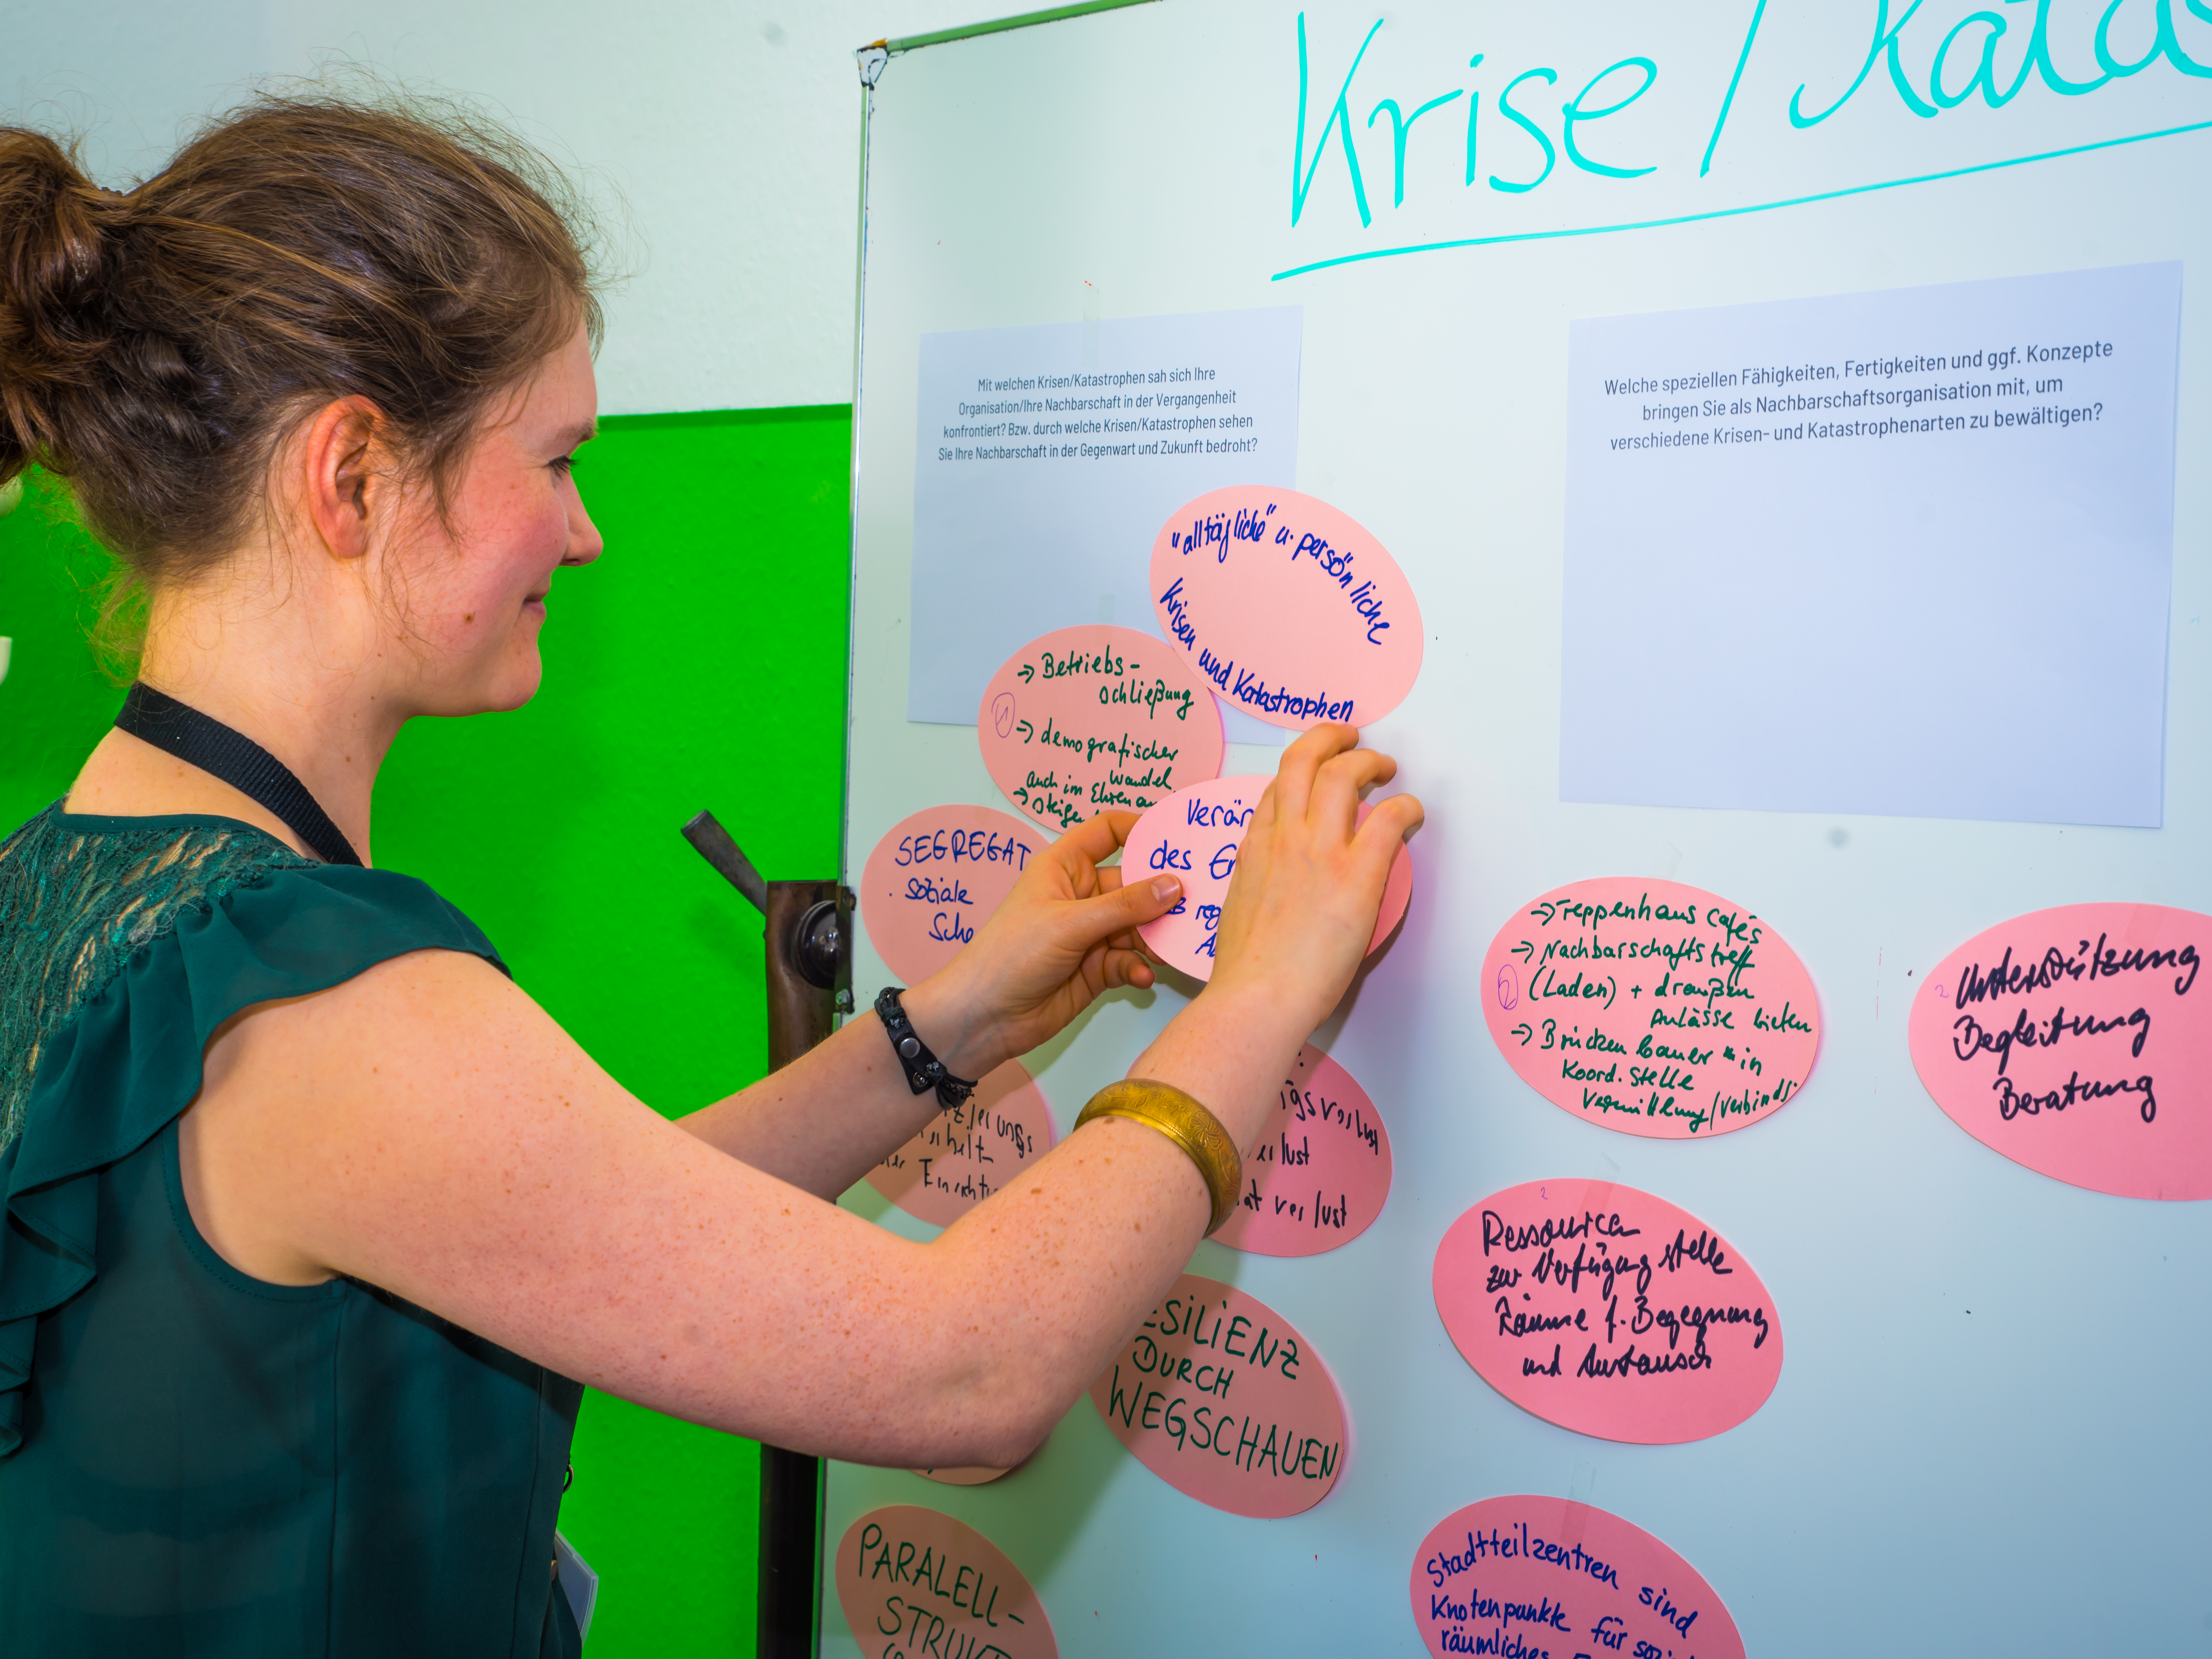 Krise / Katas
Mit welchen Krisen/Katastrophen sah sich Ihre
Organisation/Ihre Nachbarschaft in der Vergangenheit
konfrontiert? Bzw. durch welche Krisen/Katastrophen sehen
Sie Ihre Nachbarschaft in der Gegenwart und Zukunft bedroht?
Welche speziellen Fähigkeiten, Fertigkeiten und ggf. Konzepte
bringen Sie als Nachbarschaftsorganisation mit, um
verschiedene Krisen- und Katastrophenarten zu bewältigen?
"alltägliche" u. persönliche
Krisen und Katastrophen
→ Betriebs-
schließung
1
→ demografischer
Wandel
auch im Ehrena
→ steige
Verän
des Er
reg
SEGREGAT
. soziale
Sche
zierungs
Einricht
gsverlust
lust
at verlust
ESILIENZ
DURCH
WEGSCHAUEN
PARALELL-
STRUKT
→ Treppenhaus cafés
→ Nachbarschaftstreff
2 (Laden) + draußen
Anlässe bieten
→ Brückenbauer*in
Koord. Stelle
2 Unterstützung
Begleitung
Beratung
2
Ressourcen
zur Verfügung stelle
Räume f. Begegnung
und Austausch
Stadtteilzentren sind
Knotenpunkte für sozi
räumliches